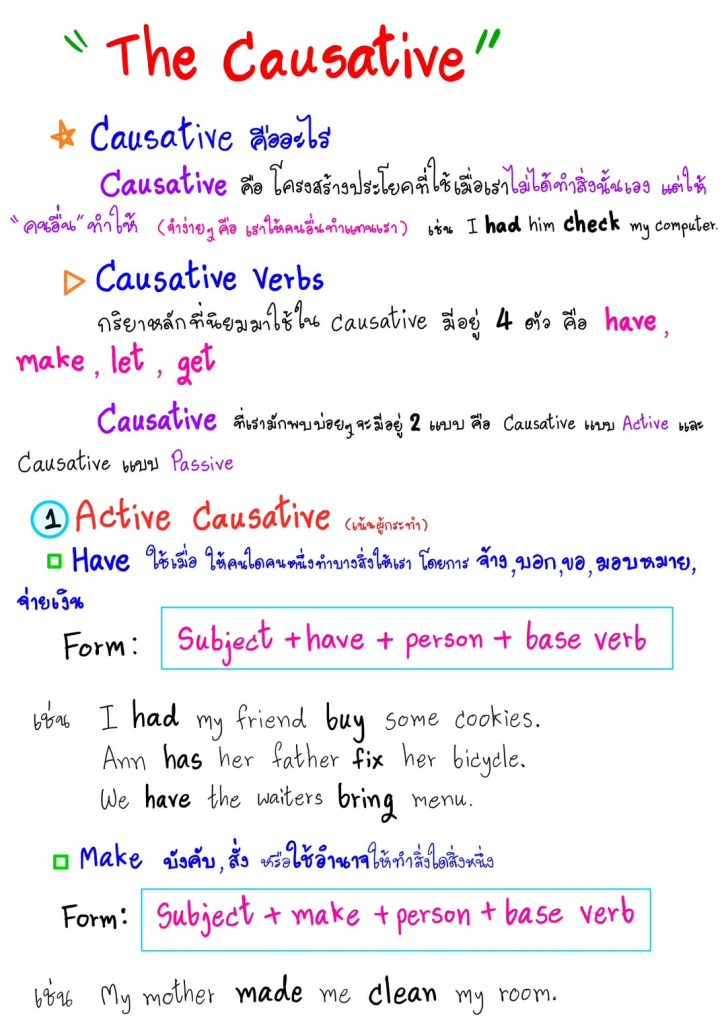 "The Causative"
Causative คืออะไร
Causative คือ โครงสร้างประโยคที่ใช้เมื่อเราไม่ได้ทำสิ่งนั้นเอง แต่ให้
"คนอื่น" ทำให้ (จำง่ายๆ คือ เราให้คนอื่นทำแทนเรา) เช่น I had him check my computer.
Causative Verbs
กริยาหลักที่นิยมมาใช้ใน Causative มีอยู่ 4 ตัว คือ have,
make, let, get
Causative ที่เรามักพบบ่อยๆ จะมีอยู่ 2 แบบ คือ Causative แบบ Active และ
Causative แบบ Passive
1 Active Causative (เน้นผู้กระทำ)
Have ใช้เมื่อ ให้คนใดคนหนึ่งทำบางสิ่งให้เรา โดยการ จ้าง, บอก, ขอ, มอบหมาย,
จ่ายเงิน
Form: Subject + have + person + base verb
เช่น I had my friend buy some cookies.
Ann has her father fix her bicycle.
We have the waiters bring menu.
Make บังคับ, สั่ง หรือใช้อำนาจให้ทำสิ่งใดสิ่งหนึ่ง
Form: Subject + make + person + base verb
เช่น My mother made me clean my room.